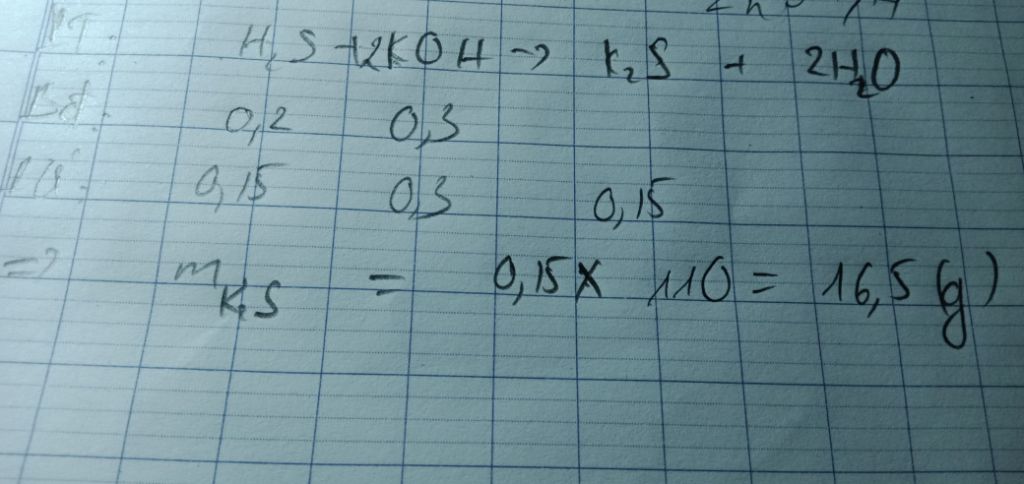 PT: H₂S + 2KOH → K₂S + 2H₂O
Bđ: 0,2 0,3
0,15 0,3 0,15
=> m K₂S = 0,15 x 110 = 16,5 (g)